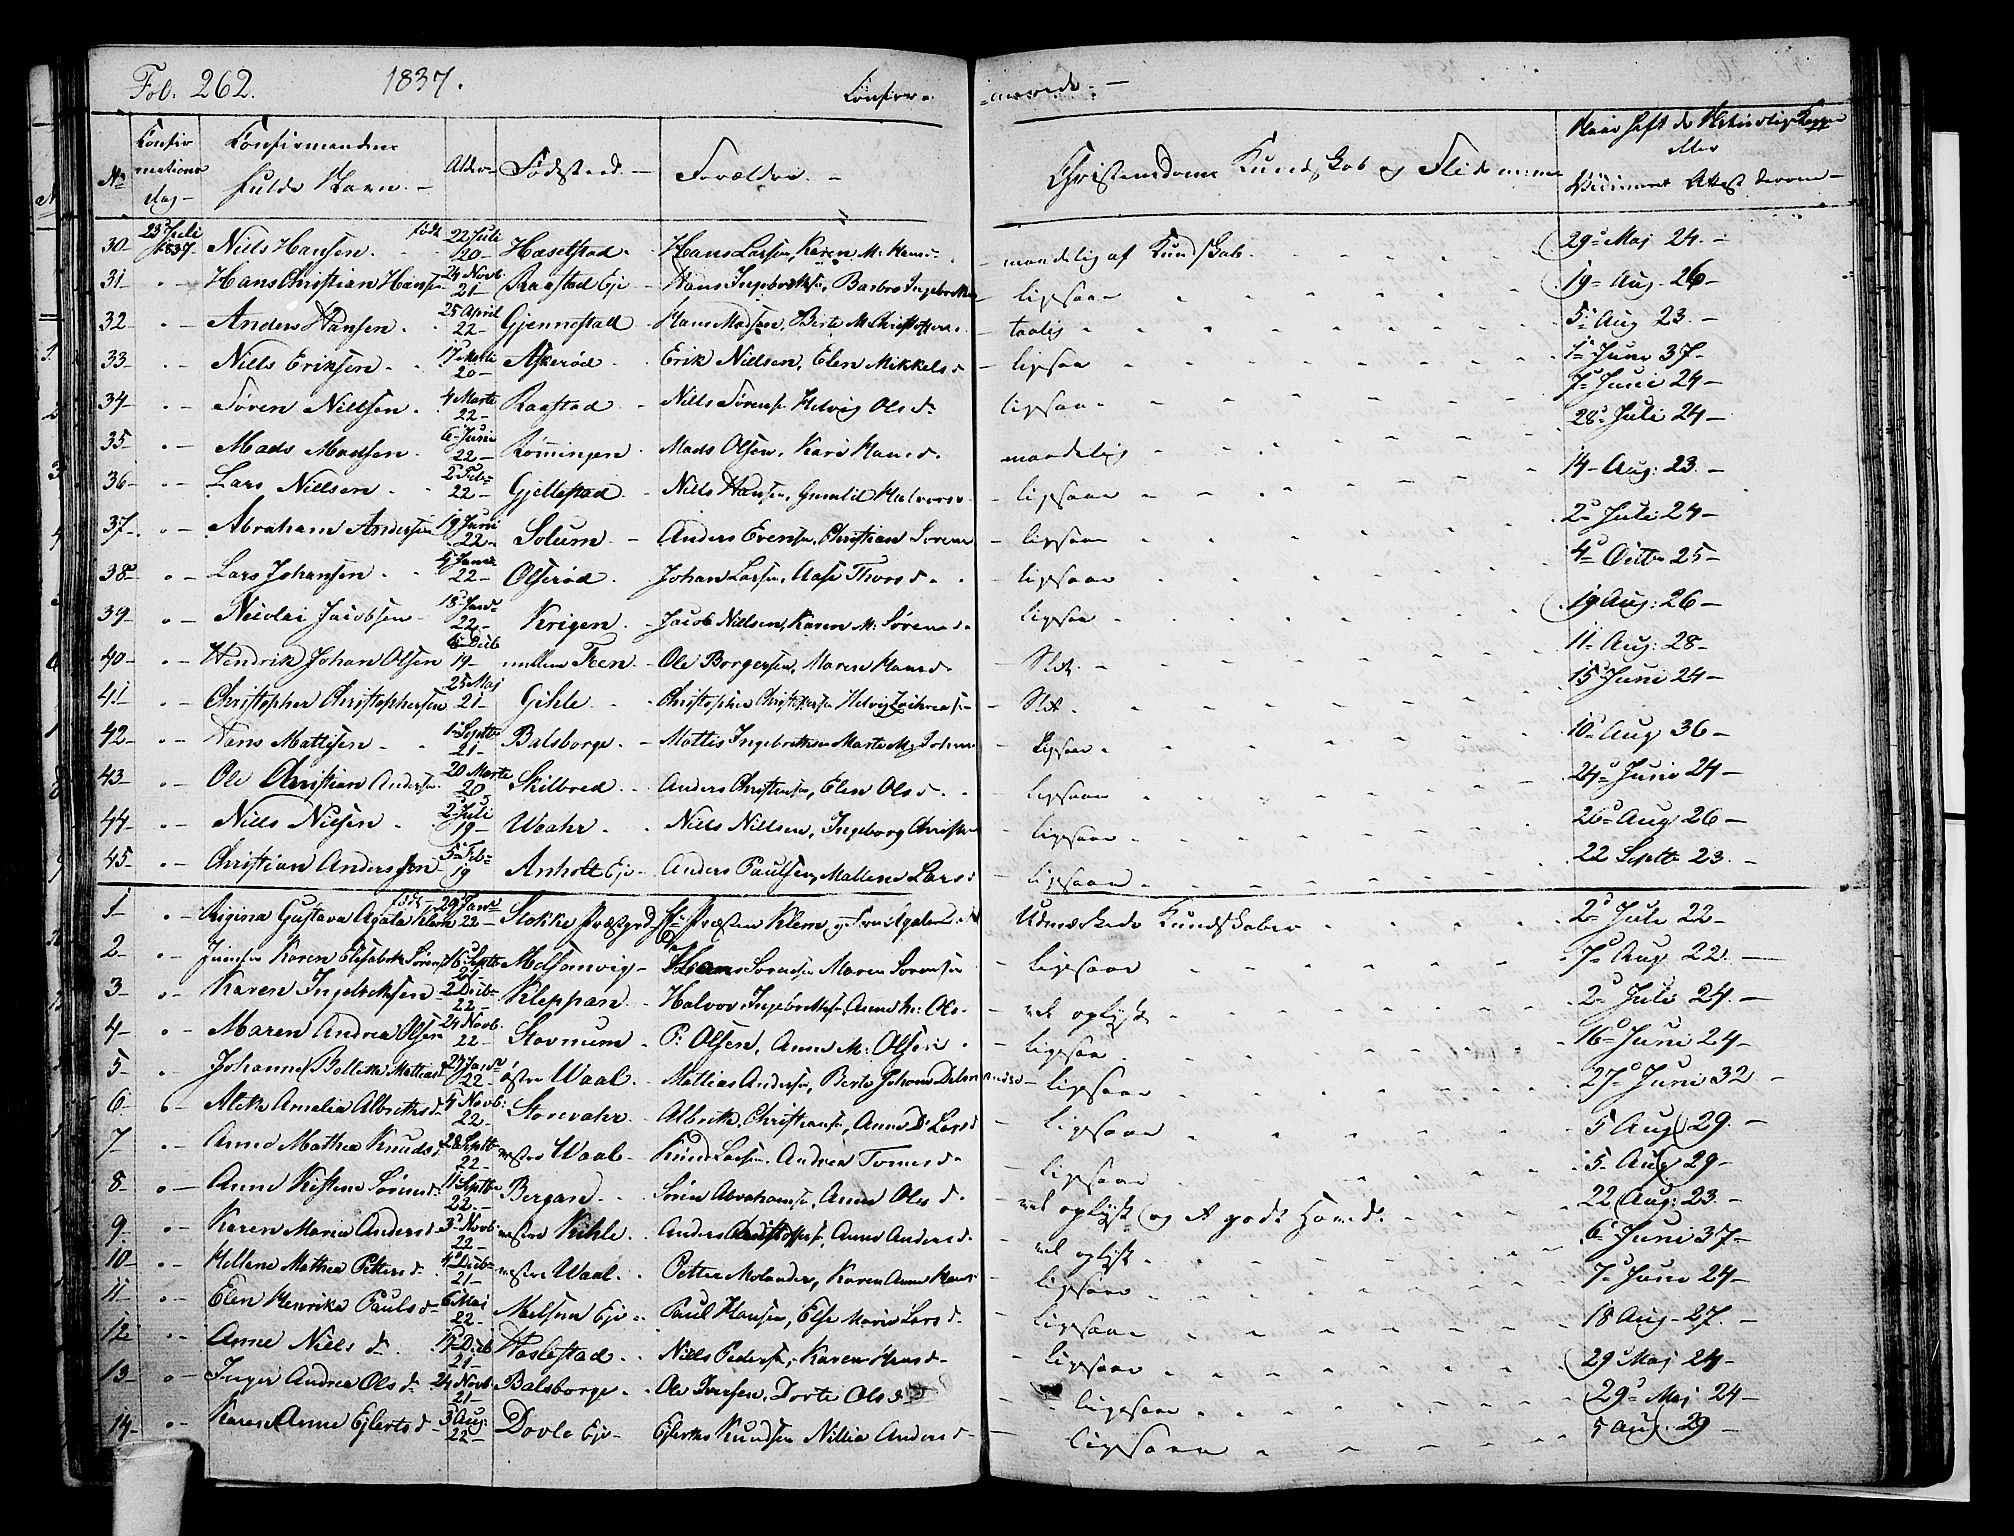 Fol. 262. 1837. Confir- merede. —
No Confirmations Dag Confirmandens fulde Navn. — Alder Fødested. — Forældre. — Christendoms Kundskab og Flid Naar havt de Naturlige Kopper eller Vaccineret Attest derom —
30 23 Juli 1837 Niels Hansen. født 22 Juli 20 — Hasetstad — Hans Larsen, Karen M. Hans d. — maadelig af Kundskab. 29 Maj 24. —
31 " — Hans Christian Hansen 24 Novb. 21 — Raastad Eje — Hans Ingebrethsen, Barbro Ingebreths — ligesaa 19 — Aug. 26 —
32 " — Anders Hansen. 25 April 22 — Gjennestad — Hans Madsen, Berte M. Christoffers. — taalig 5 Aug 23. —
33 " — Niels Eriksen 17 Marti 20 — Askerød — Erik Nielsen, Elen Mikkels d — ligesaa 1 Juni 37 —
34 " — Søren Nielsen. 4 Marti 22 — Raastad — Niels Sørens. Helvig Ols d. — ligesaa 7 Juni 24 —
35 " — Mads Madsen. 6 Juni 22 — Rømingen — Mads Olsen, Kari Hans d. — maadelig 28 Juli 24 —
36 " — Lars Nielsen 2 Feb. 22 — Gjellestad — Niels Hansen, Gunild Halvors. — ligesaa 14 — Aug: 23. —
37 " — Abraham Andersen 19 Juni 22 — Solum — Anders Evensen, Christian Sørens — ligesaa 2 Juli 24 —
38 " — Lars Johansen 4 Janr. 22 — Olserød. — Johan Larsen, Aase Thors d. — ligesaa 4 Octbr 25 —
39 " — Nicolai Jacobsen 18 Janr. 22 — Krigen. — Jacob Nielsen, Karen M. Sørens d. — ligesaa 19 Aug: 26 —
40 " — Hendrik Johan Olsen 6 Decb 19 — mellem Feen — Ole Borgersen, Maren Hans d. — Slet. 11 Aug: 28 —
41 " — Christopher Christophersen 25 Maj 21 — Gihle. — Christopher Christoffersen Helvig — Slet. 15 Juni 24 —
42 " — Hans Mattisen 1 Septb 21 — Balsborge. — Mattis Ingebrethsen Marte M. Johans — Ligesaa 10 Aug 36 —
43 " — Ole Christian Andersen 20 Marti 20 Skilbred — Anders Christiansen, Elen Ols d. — ligesaa 24 Juni 24 —
44 " — Niels Nielsen 2 Juli 19 — Waahr. — Niels Nielsen, Ingeborg Christens — ligesaa 26 Aug 26 —
45 " — Christian Anderssen 5 Feb. 19 Anholt Eje — Anders Paulsen, Mallene Lars d — ligesaa 22 Septb 23. —
1 " — Regina Gustava Agata Klem født 29 Janr. 22 — Stokke Præstgrd. Hr. Præsten Klem, og Agata — Udmærkede Kundskaber 2 Juli 22 —
2 " — Karen Elisabeth Sørensen 16 Septb Melsomvig — Hans Sørensen Maren Sørensen — ligesaa 7 Aug 22. —
3 " — Karen Ingebrethsen 2 Decb. 22 — Kleppan — Halvor Ingebrethsen, Anne M. Ols. — vel oplyst 2 Juli 24. —
4 " — Maren Andrea Olsen 24 Novb. 22 — Stavnum — P. Olsen, Anne M. Olsen — ligesaa 16 Juni 24 —
5 " — Johanne Bollette Mathias 23 Janr 22 — østre Waal. — Mattias Andersen, Berte Johanne — ligesaa 27 Juni 32 —
6 " — Amalia Albreths d. 4 Novb: 22 — Storevahr — Albreth Christiansen, Anne D. Lars d — ligesaa 5 Aug 29. —
7 " — Anne Mathea Knuds 28 Septb 22 — vestre Waal — Knud Larsen. Andrea Tores d. — ligesaa 5. Aug 29 —
8 " — Anne Kistine Sørens d. 11 Septb 22. — Bergan — Søren Abrahamsen, Anne Ols d. — vel oplyst og et godt Hoved. 22 Aug: 23. —
9 " — Karen Maria Anders d 3 Novb. 22 — vestre Kihle. — Anders Christoffers. Anne Anders d. — vel oplyst 6 Juni 37 —
10 " — Hellene Mathea Petters d. 4 Decb. 21 — vestre Waal. — Petter Molander, Karen Anne Hans — ligesaa 7 Juni 24 —
11 " — Elen Henrikka Pauls d. 6 Maj 22 — Melsom Eje — Paul Hansen, Else Maria Lars d. — ligesaa 18 Aug. 27. —
12 " — Anne Niels d. 14 Decb 21 — Haslestad. — Niels Pedersen, Karen Hans d. — ligesaa 29 Maj 24 —
13 " — Inger Andrea Ols d. 24 Novb. 21 — Balsborge. — Ole Iversen. Dorte Ols d — ligesaa 29 Maj 24 —
14 " — Karen Anne Ejlerts d. 3 Aug. 22 — Dovle Eje — Ejlerts Knudsen Nillia Anders d. — ligesaa 5 Aug. 29